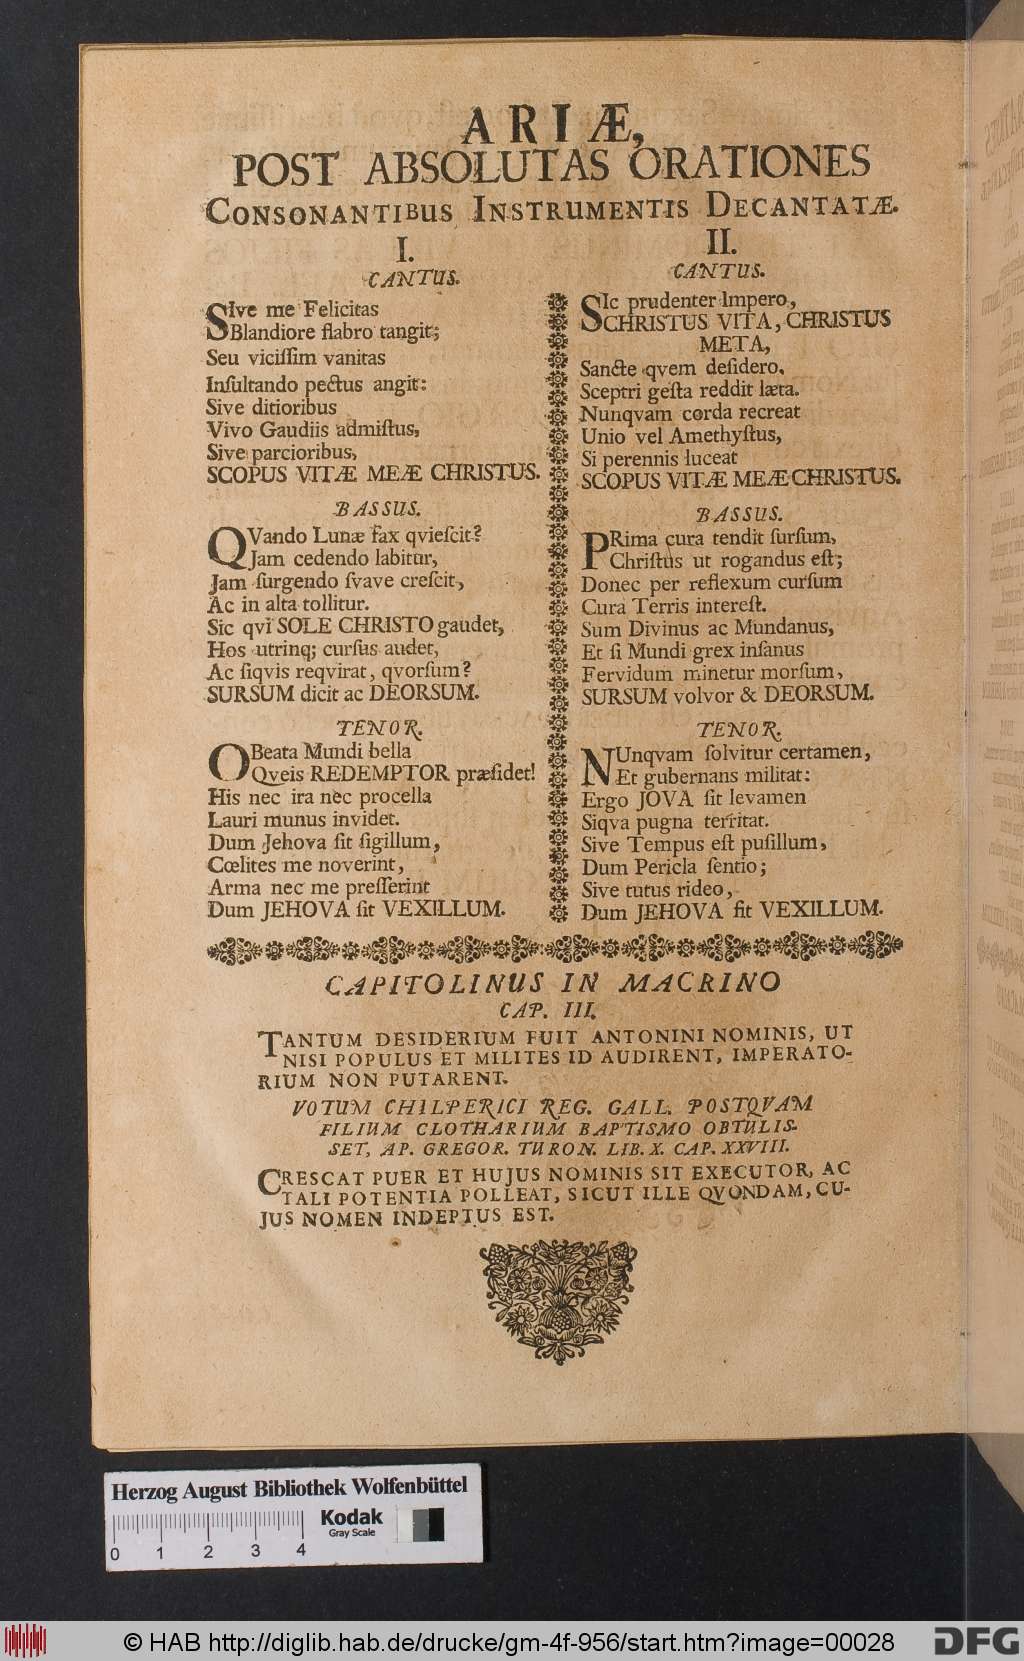 ARIÆ,
POST ABSOLUTAS ORATIONES
CONSONANTIBUS INSTRUMENTIS DECANTATÆ.
I.
CANTUS.
SIve me Felicitas
Blandiore flabro tangit;
Seu viciſſim vanitas
Inſultando pectus angit:
Sive ditioribus
Vivo Gaudiis admiſtus,
Sive parcioribus,
SCOPUS VITÆ MEÆ CHRISTUS.
BASSUS.
QVando Lunæ fax qvieſcit?
Jam cedendo labitur,
Jam ſurgendo ſvave creſcit,
Ac in alta tollitur.
Sic qvi SOLE CHRISTO gaudet,
Hos utrinq; curſus audet,
Ac ſiqvis reqvirat, qvorſum?
SURSUM dicit ac DEORSUM.
TENOR.
O Beata Mundi bella
Qveis REDEMPTOR præſidet!
His nec ira nec procella
Lauri munus invidet.
Dum Jehova ſit ſigillum,
Cœlites me noverint,
Arma nec me preſſerint
Dum JEHOVA ſit VEXILLUM.
II.
CANTUS.
SIc prudenter Impero,
CHRISTUS VITA, CHRISTUS
META,
Sancte qvem deſidero.
Sceptri geſta reddit læta.
Nunqvam corda recreat
Unio vel Amethyſtus,
Si perennis luceat
SCOPUS VITÆ MEÆ CHRISTUS.
BASSUS.
PRima cura tendit ſurſum,
Chriſtus ut rogandus eſt;
Donec per reflexum curſum
Cura Terris intereſt.
Sum Divinus ac Mundanus,
Et ſi Mundi grex inſanus
Fervidum minetur morſum,
SURSUM volvor & DEORSUM.
TENOR.
NUnqvam ſolvitur certamen,
Et gubernans militat:
Ergo JOVA ſit levamen
Siqva pugna territat.
Sive Tempus eſt puſillum,
Dum Pericla ſentio;
Sive tutus rideo,
Dum JEHOVA ſit VEXILLUM.
CAPITOLINUS IN MACRINO
CAP. III.
TANTUM DESIDERIUM FUIT ANTONINI NOMINIS, UT
NISI POPULUS ET MILITES ID AUDIRENT, IMPERATO-
RIUM NON PUTARENT.
VOTUM CHILPERICI REG. GALL. POSTQVAM
FILIUM CLOTHARIUM BAPTISMO OBTULIS-
SET, AP. GREGOR. TURON. LIB. X. CAP. XXVIII.
CRESCAT PUER ET HUJUS NOMINIS SIT EXECUTOR, AC
TALI POTENTIA POLLEAT, SICUT ILLE QVONDAM, CU-
JUS NOMEN INDEPTUS EST.
Herzog August Bibliothek Wolfenbüttel
Kodak
Gray Scale
0 1 2 3 4
© HAB http://diglib.hab.de/drucke/gm-4f-956/start.htm?image=00028
DFG